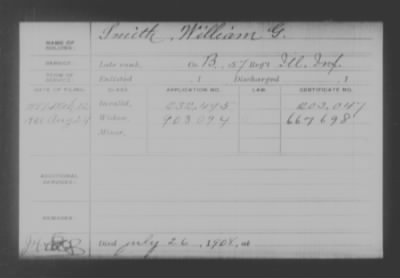 NAME OF SOLDIER: Smith, William G.
SERVICE: Late rank, Co. B, 57 Reg't Ill. Inf.
TERM OF SERVICE: Enlisted , 1 Discharged , 1
DATE OF FILING. CLASS. APPLICATION NO. LAW. CERTIFICATE NO.
Invalid,
1908 Aug 24 Widow, 903,094 667698
Minor,
ADDITIONAL SERVICES:
REMARKS:
Died July 26, 1908, at